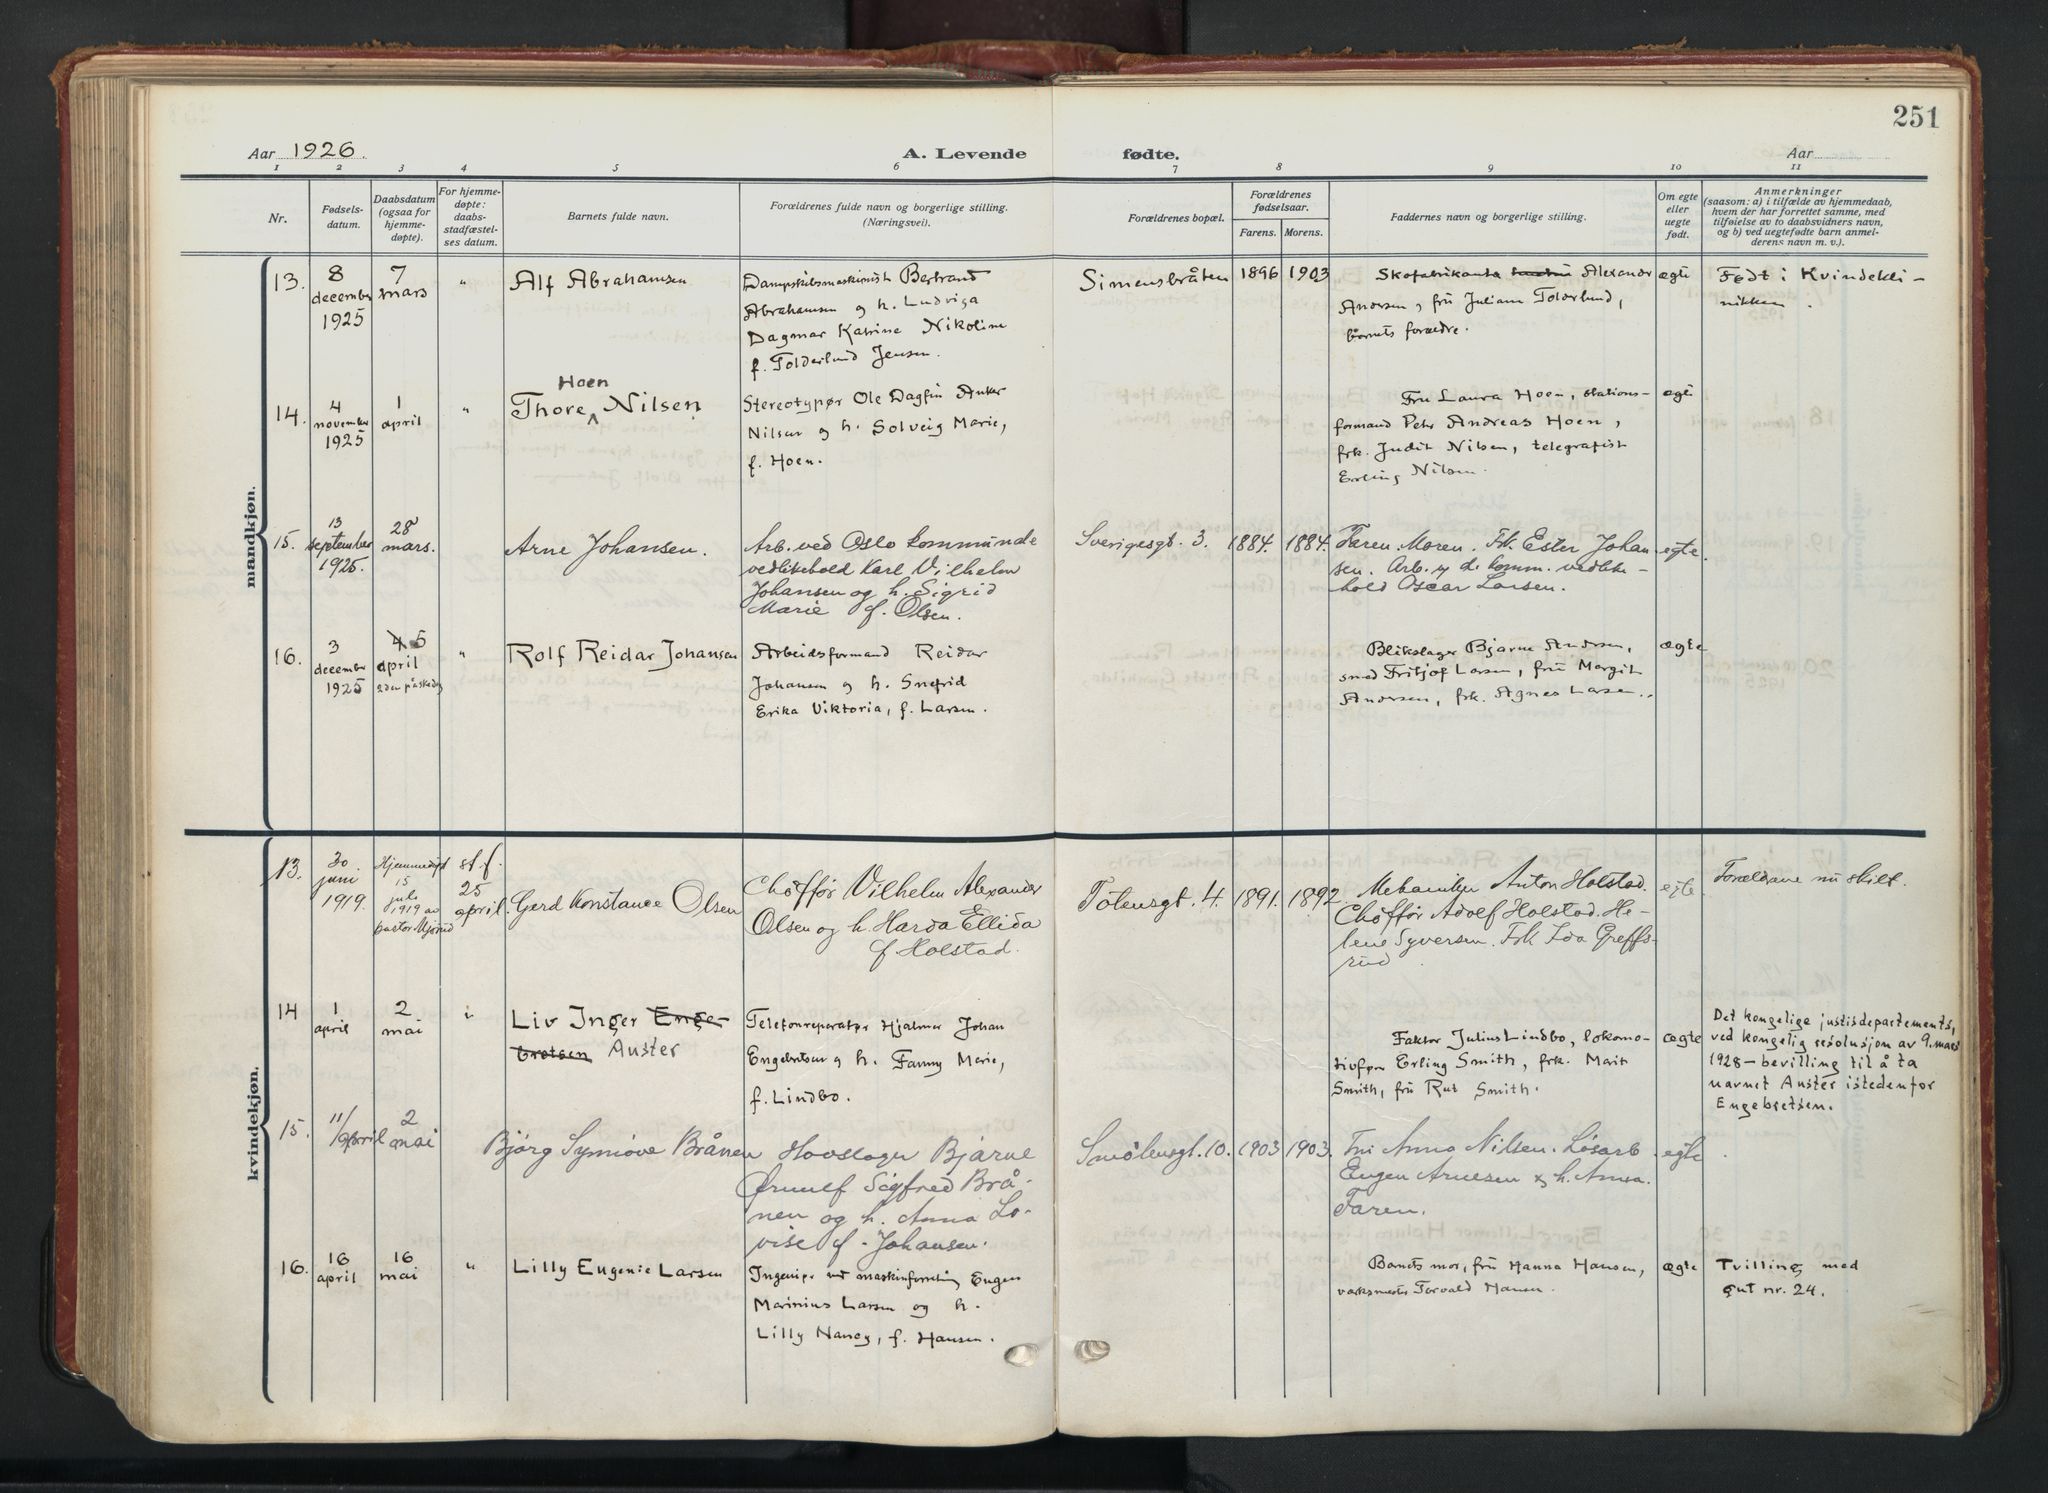 251
Aar 1926. A. Levende fødte. Aar
1 2 3 4 5 6 7 8 9 10 11
Nr.
Fødsels-
datum.
Daabsdatum
(ogsaa for
hjemme-
døpte).
For hjemme-
døpte:
daabs-
stadfæstel-
ses datum.
Barnets fulde navn.
Forældrenes fulde navn og borgerlige stilling.
(Næringsvei).
Forældrenes bopæl.
Forældrenes
fødselsaar.
Farens. Morens.
Faddernes navn og borgerlige stilling.
Om egte
eller
uegte
født.
Anmerkninger
(saasom: a) i tilfælde av hjemmedaab,
hvem der har forrettet samme, med
tilføielse av to daabsvidners navn,
og b) ved uegtefødte barn anmel-
derens navn m. v.).
mandkjøn.
13.
8
december
1925
7
mars
"
Alf Abrahamsen
Dampskibsmaskinist Bertrand
Abrahamsen og h. Ludviga
Dagmar Katrine Nikoline
f. Tolderlund Jensen.
Simensbråten
1896 1903
Skofabrikant Alexander
Andersen, fru Juliane Tolderlund,
barnets forældre.
ægte
Født i Kvindekli-
nikken.
14.
4
november
1925
1
april
"
Hoen
Thore Nilsen
Stereotypør Ole Dagfin Anker
Nilsen og h. Solveig Marie,
f. Hoen.
Fru Laura Hoen, stations-
formand Peter Andreas Hoen,
frk. Judit Nilsen, telegrafist
Erling Nilsen.
ægte
15.
13
september
1925.
28
mars.
Arne Johansen.
Arb. ved Oslo kommunde
vedlikehold Karl Vilhelm
Johansen og h. Sigrid
Marie f. Olsen.
Sverigesgt. 3.
1884. 1884.
Faren. Moren. Frk. Ester Johan
sen. Arb. v. d. komm. vedlike-
hold Oscar Larsen.
egte.
16.
3
december
1925
4 5
april
2den påskedag
"
Rolf Reidar Johansen
Arbeidsformand Reidar
Johansen og h. Snefrid
Erika Viktoria, f. Larsen.
Blikslager Bjarne Andersen,
smed Fritjof Larsen, fru Margit
Andersen, frk. Agnes Larsen.
ægte
kvindekjøn.
13.
30
juni
1919.
Hjemmedøpt
15
juli
1919 av
pastor
st. f.
25
april.
Gerd Konstance Olsen
Choffør Vilhelm Alexander
Olsen og h. Harda Ellida
f. Holstad.
Totensgt. 4.
1891. 1892.
Mekaniker Anton Holstad.
Choffør Adolf Holstad. He-
lene Syversen. Frk Ida Greffs-
rud.
egte
Forældrene nu skilt.
14
1
april
2
mai
Liv Inger Enge-
bretsen Auster
Telefonreparatør Hjalmar Johan
Engebretsen og h. Fanny Marie,
f. Lindbo.
Faktor Julius Lindbo, lokomo-
tivfører Erling Smith, frk. Marit
Smith, fru Rut Smith.
ægte
Det kongelige justisdepartements,
ved kongelig resolusjon av 9. mars
1928 – bevilling til å ta
navnet Auster istedenfor
Engebretsen.
15.
11/
april
2
mai
Bjørg Synnøve Brånen
Hovslager Bjarne
Ørnulf Sigfred Brå-
nen og h. Anna Lo-
vise f. Johansen.
Smålensgt. 10.
1903 1903.
Fru Anna Nilsen. Løsarb
Eugen Arnesen & h. Anna.
Faren.
egte
16.
16
april
16
mai
"
Lilly Eugenie Larsen
Ingeniør ved maskinforretning Eugen
Marinius Larsen og h.
Lilly Nancy, f. Hansen.
Barnets mor, fru Hanna Hansen,
verksmester Torvald Hansen.
ægte
Tvilling med
gut nr. 24.